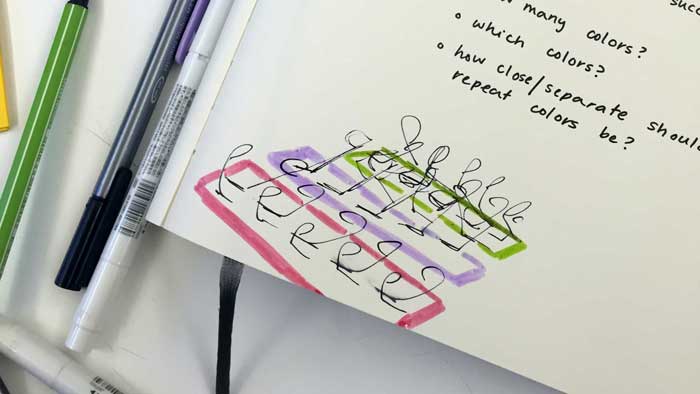 many colors?
• which colors?
• how close/separate
repeat colors be?